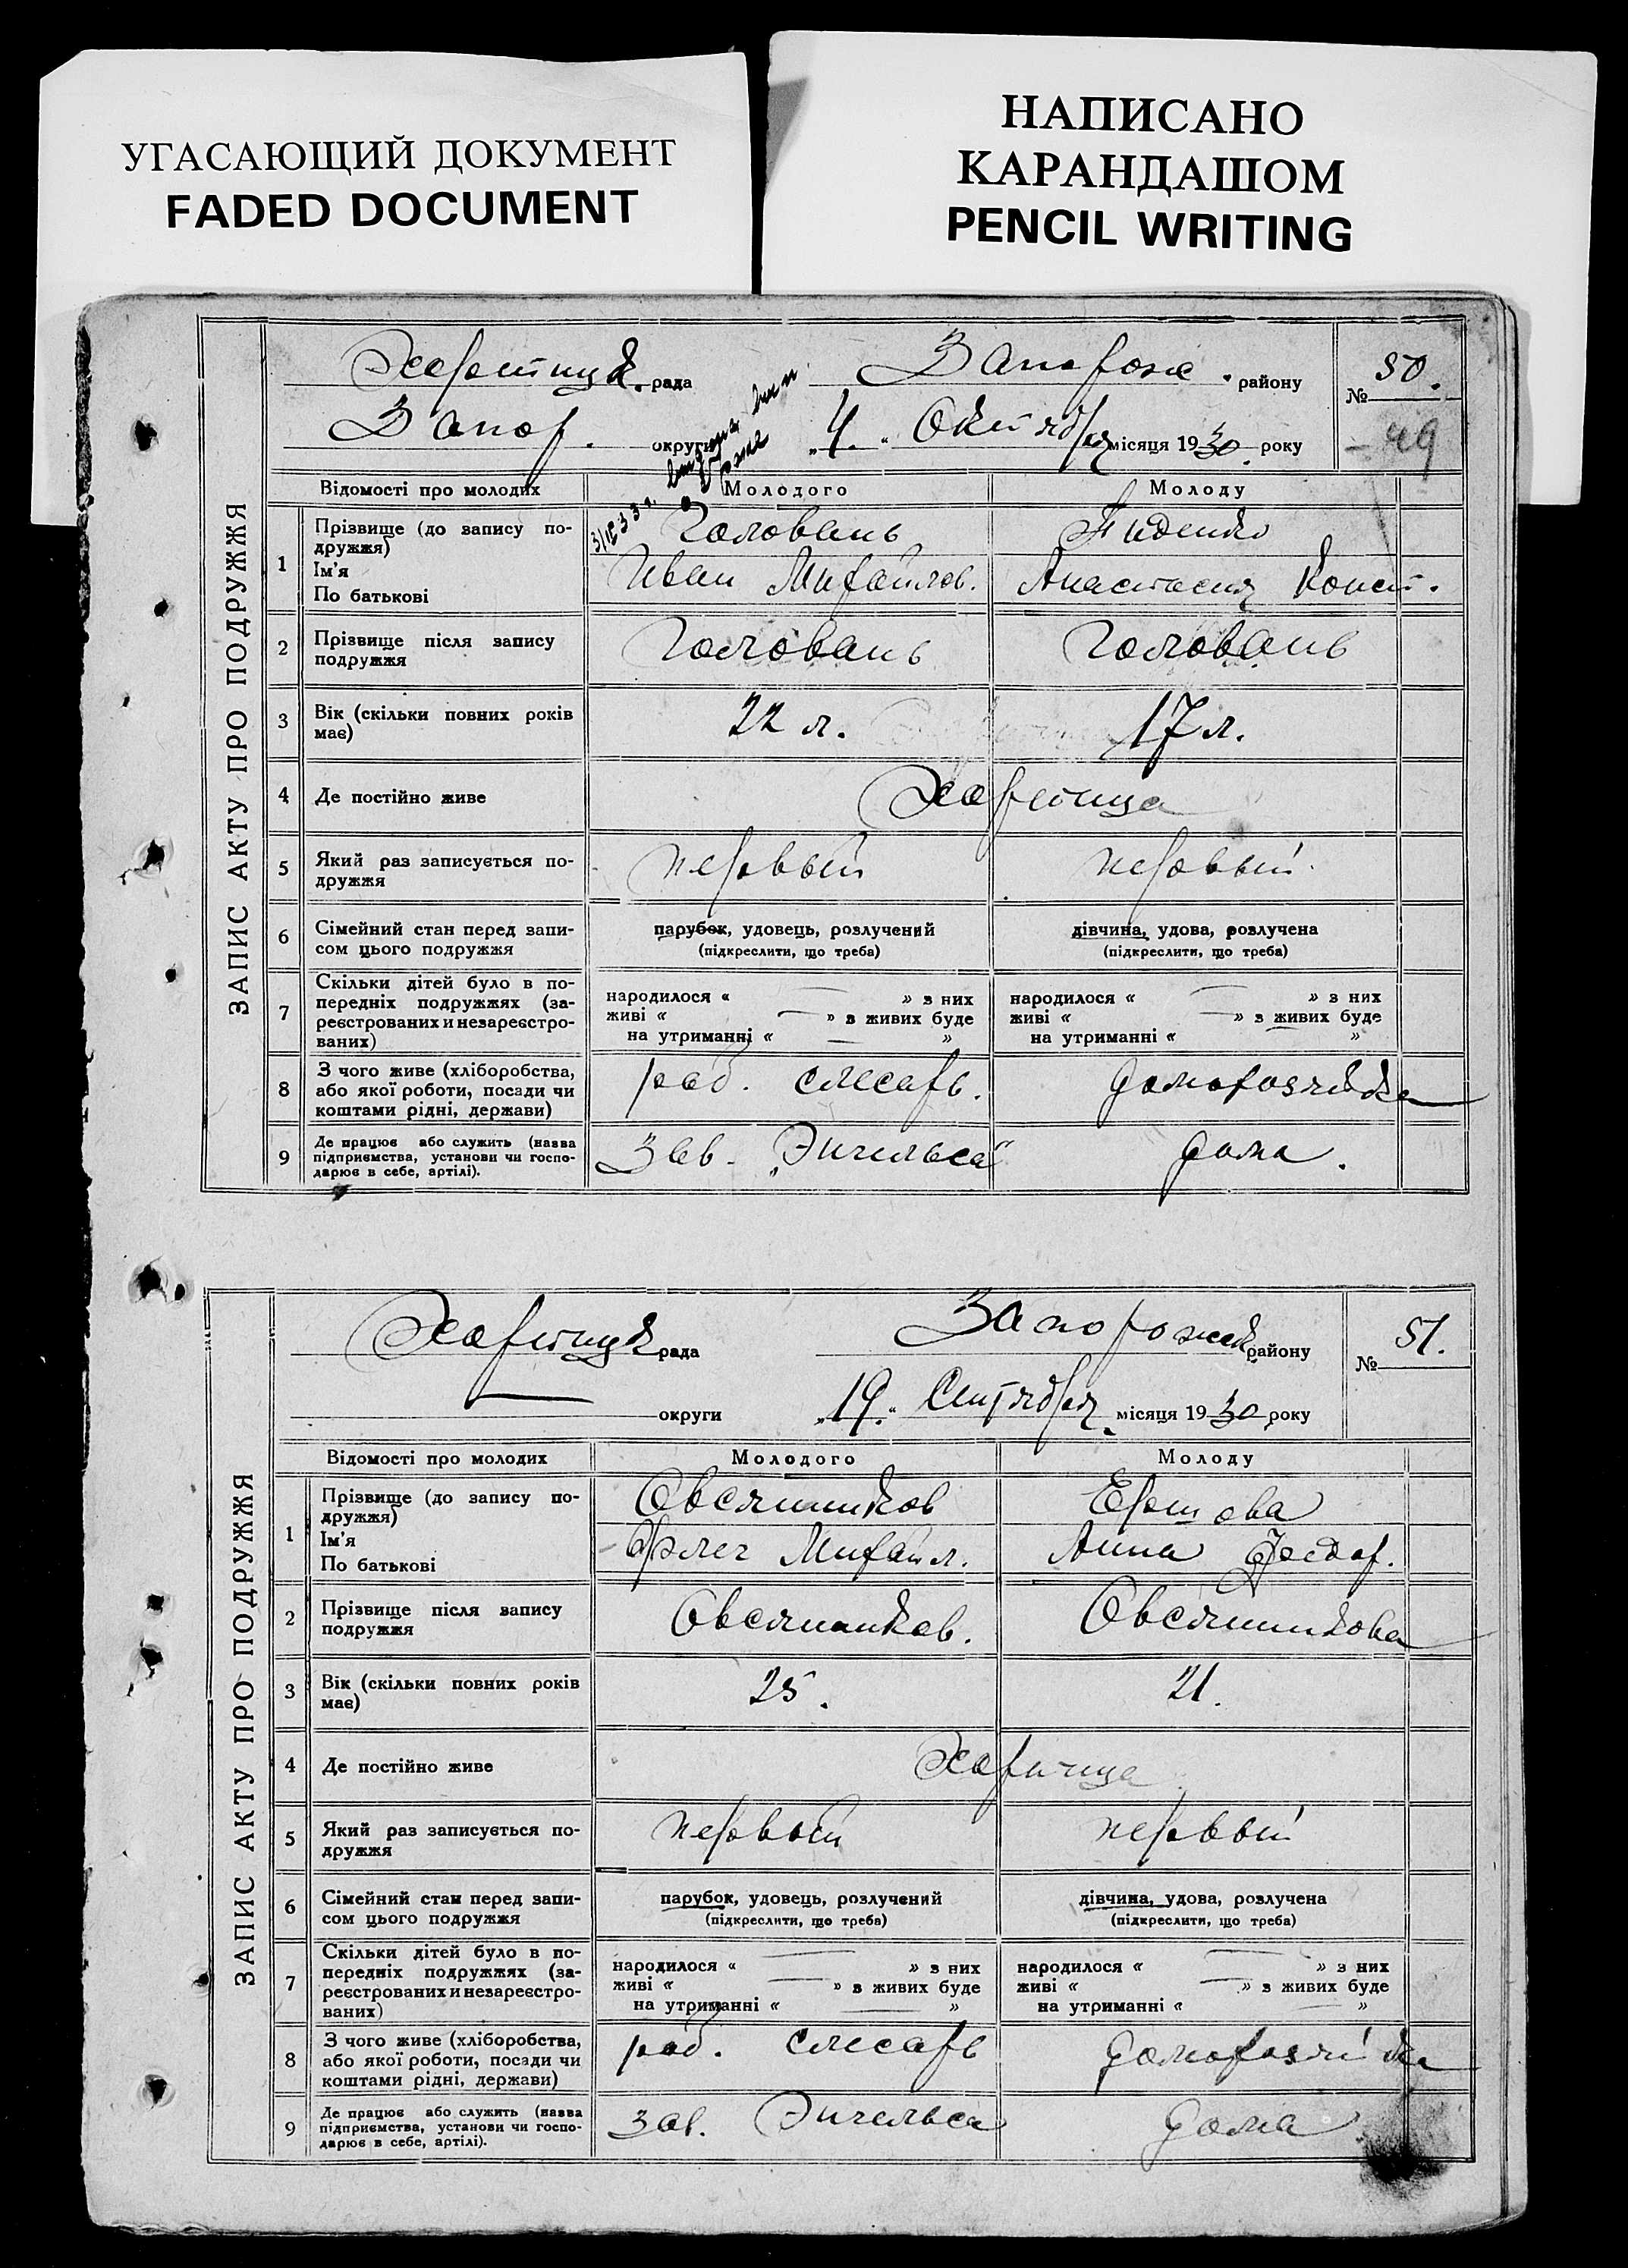 УГАСАЮЩИЙ ДОКУМЕНТ
FADED DOCUMENT
НАПИСАНО
КАРАНДАШОМ
PENCIL WRITING
ЗАПИС АКТУ ПРО ПОДРУЖЖЯ
Хортицьк. рада Запорож. району № 50.
Запор. округи „4.“ Октября місяця 1930. року – 49
Відомості про молодих Молодого Молоду
1 Прізвище (до запису по-
дружжя)
Ім'я
По батькові
Головань
Иван Михайлов.
Анастасия Конст.
2 Прізвище після запису
подружжя
Головань Головань
3 Вік (скільки повних років
має)
22 л. 17 л.
4 Де постійно живе Хортица
5 Який раз записується по-
дружжя
первый первый
6 Сімейний стан перед запи-
сом цього подружжя
парубок, удовець, розлучений
(підкреслити, що треба)
дівчина, удова, розлучена
(підкреслити, що треба)
7 Скільки дітей було в по-
передніх подружжях (за-
реєстрованих и незареєстро-
ваних)
народилося « — » з них
живі « — » з живих буде
на утриманні « — »
народилося « — » з них
живі « — » з живих буде
на утриманні « — »
8 З чого живе (хліборобства,
або якої роботи, посади чи
коштами рідні, держави)
раб. слесарь. домохозяйка
9 Де працює або служить (назва
підприємства, установи чи госпо-
дарює в себе, артілі).
Зав. „Энгельса“ дома.
ЗАПИС АКТУ ПРО ПОДРУЖЖЯ
Хортицьк рада Запорожск району № 51.
— округи „19.“ Сентября місяця 1930 року
Відомості про молодих Молодого Молоду
1 Прізвище (до запису по-
дружжя)
Ім'я
По батькові
Овсянников Ершова
Михайл. Анна Федор.
2 Прізвище після запису
подружжя
Овсянников. Овсянникова
3 Вік (скільки повних років
має)
25. 21.
4 Де постійно живе Хортица
5 Який раз записується по-
дружжя
первый первый
6 Сімейний стан перед запи-
сом цього подружжя
парубок, удовець, розлучений
(підкреслити, що треба)
дівчина, удова, розлучена
(підкреслити, що треба)
7 Скільки дітей було в по-
передніх подружжях (за-
реєстрованих и незареєстро-
ваних)
народилося « — » з них
живі « — » з живих буде
на утриманні « — »
народилося « — » з них
живі « — » з живих буде
на утриманні « — »
8 З чого живе (хліборобства,
або якої роботи, посади чи
коштами рідні, держави)
раб. слесарь домохозяйка
9 Де працює або служить (назва
підприємства, установи чи госпо-
дарює в себе, артілі).
зав. Энгельса дома.